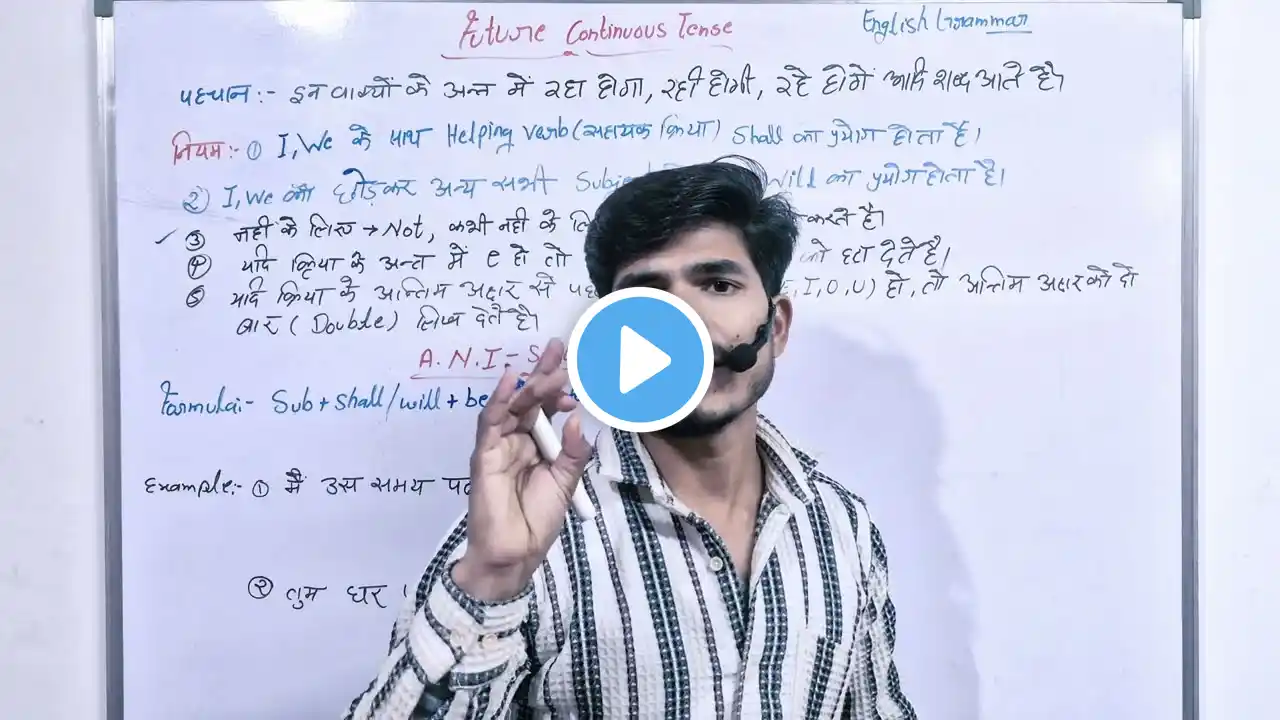 Future Continuous Tense
English Grammar
पहचान :- इन वाक्यों के अन्त में रहा होगा, रही होगी, रहे होगें आदि शब्द आते है।
नियम :- ① I, We के साथ Helping verb (सहायक क्रिया) Shall का प्रयोग होता है।
② I, We को छोड़कर अन्य सभी Will का प्रयोग होता है।
③ नहीं के लिए → Not, कभी नहीं के करते है।
④ यदि क्रिया के अन्त में e हो तो को हटा देते है।
⑤ यदि क्रिया के अन्तिम अक्षर से E, I, O, U) हो, तो अन्तिम अक्षर को दो
बार (Double) लिख देते है।
A. N. I -
Formula:- Sub + shall/will + be
Example:- ① मैं उस समय
② तुम घर